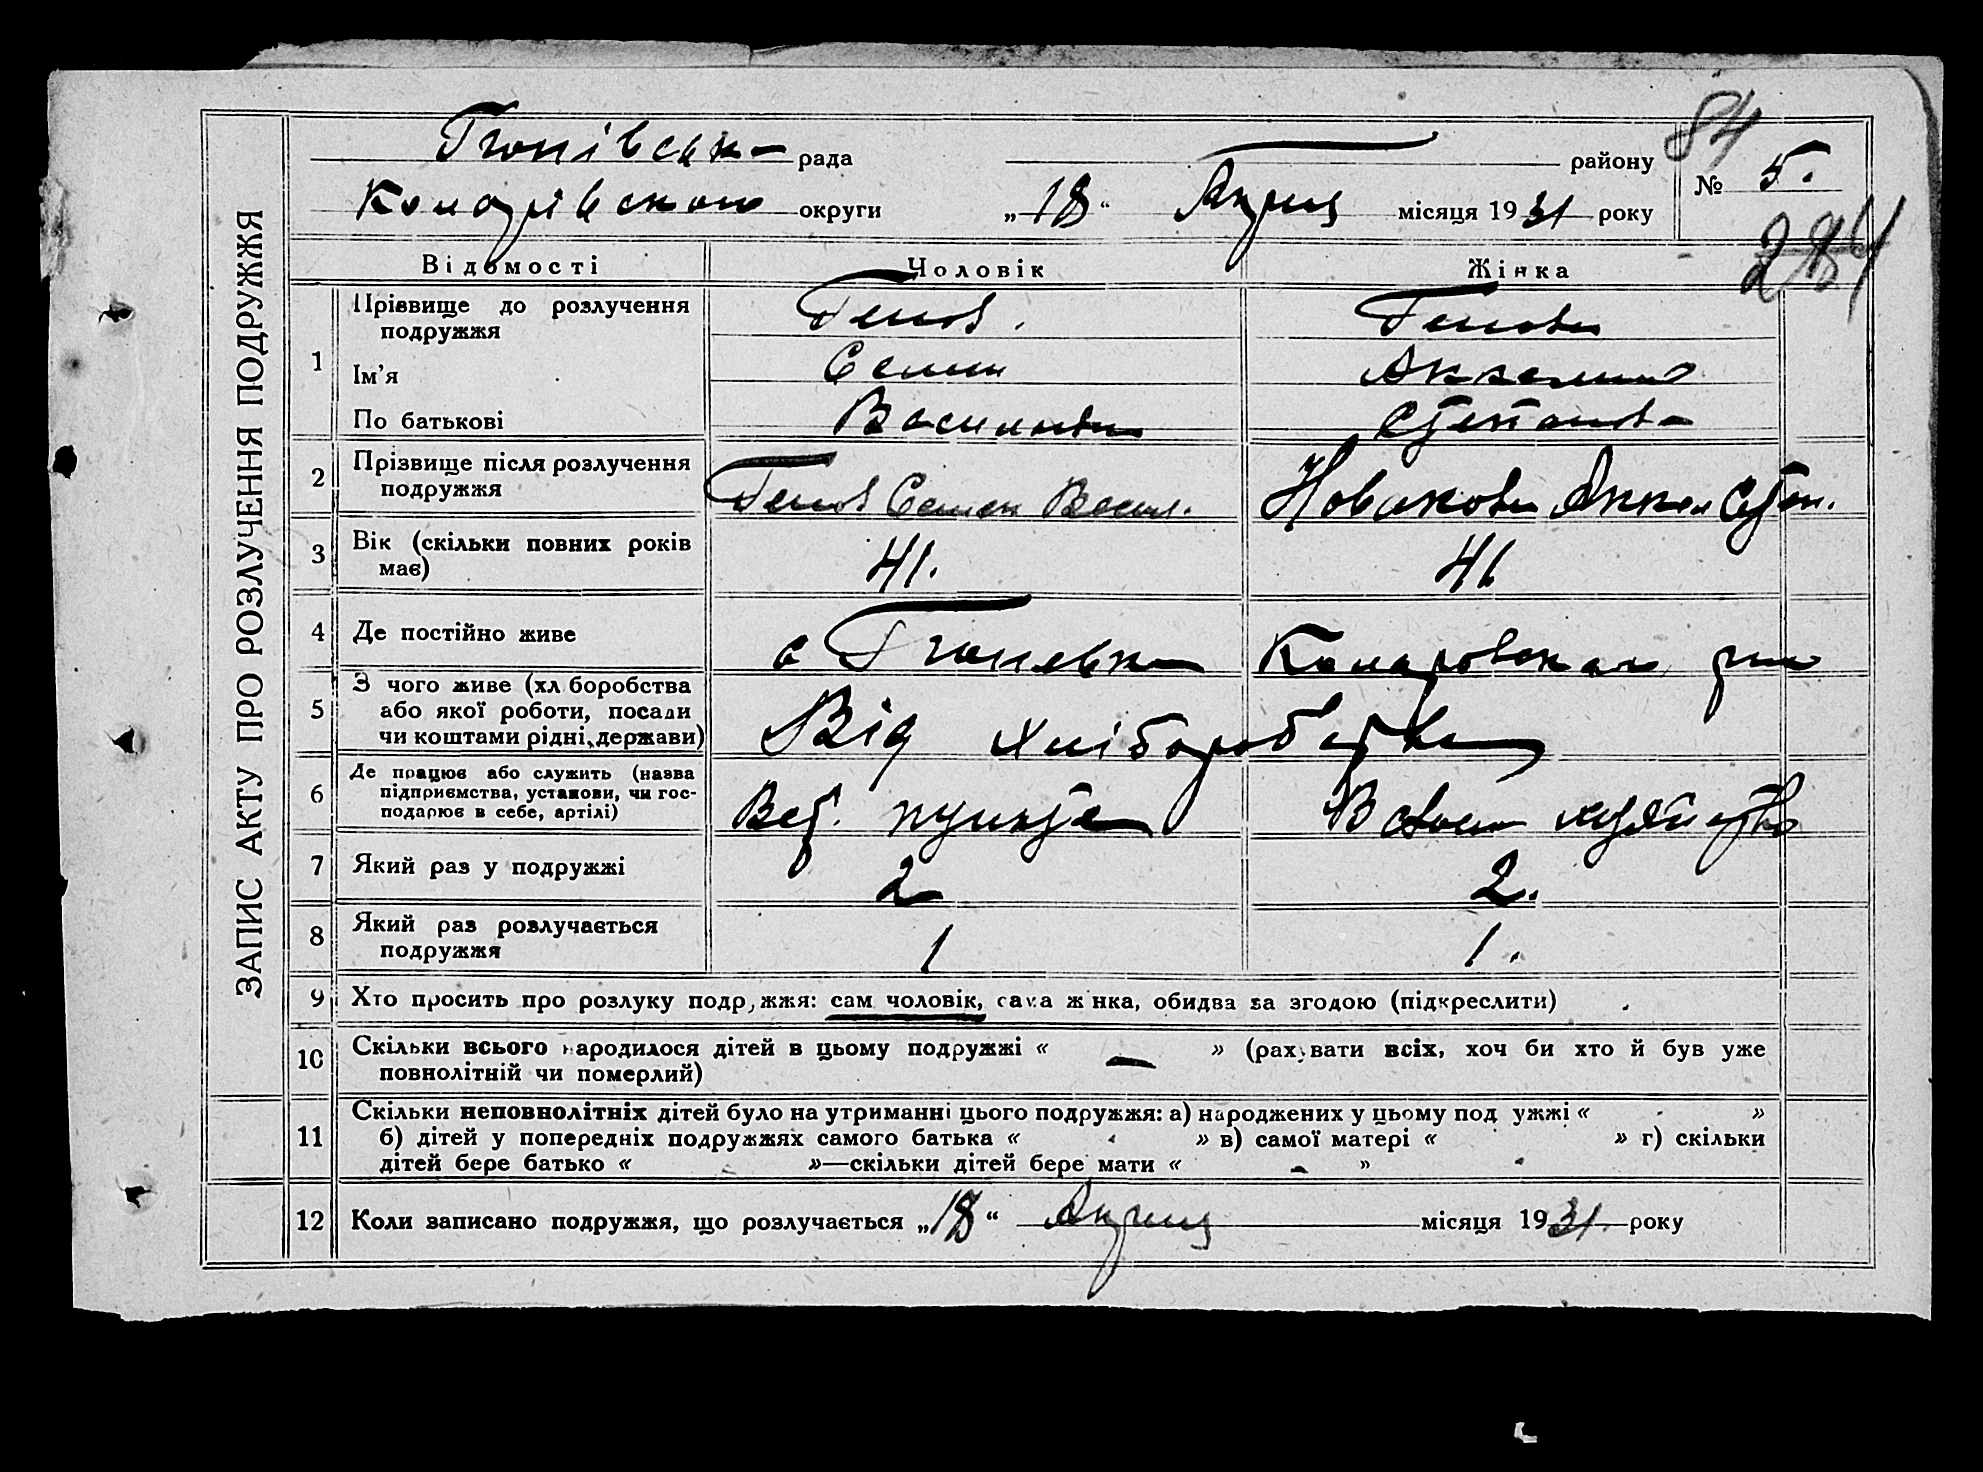 84
рада
району
№ 5.
округи
„18“ Апреля місяця 1931 року
284
ЗАПИС АКТУ ПРО РОЗЛУЧЕННЯ ПОДРУЖЖЯ
Відомості Чоловік Жінка
1 Прізвище до розлучення
подружжя
Генов. Генова
Ім’я Семен
По батькові Степанов-
2 Прізвище після розлучення
подружжя
Генов Семен Васил. Новакова
3 Вік (скільки повних років
має)
41. 41
4 Де постійно живе с
5 З чого живе (хліборобства
або якої роботи, посади
чи коштами рідні, держави)
Від хліборобства
6 Де працює або служить (назва
підприємства, установи, чи гос-
подарює в себе, артілі)
Вет. пункте
7 Який раз у подружжі 2 2.
8 Який раз розлучається
подружжя
1 1.
9 Хто просить про розлуку подружжя: сам чоловік, сама жінка, обидва за згодою (підкреслити)
10 Скільки всього народилося дітей в цьому подружжі « — » (рахувати всіх, хоч би хто й був уже
повнолітній чи померлий)
11 Скільки неповнолітніх дітей було на утриманні цього подружжя: а) народжених у цьому подружжі « »
б) дітей у попередніх подружжях самого батька « » в) самої матері « » г) скільки
дітей бере батько « »—скільки дітей бере мати « »
12 Коли записано подружжя, що розлучається „18“ Апреля місяця 1931. року